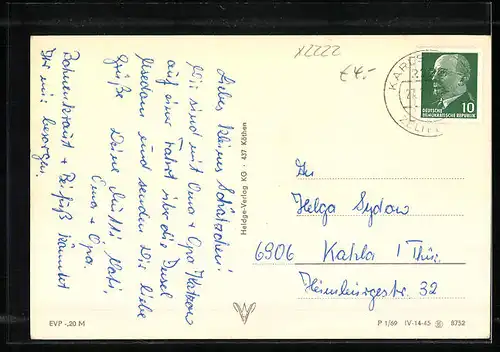 x2222
€4,-
Liebes kleines Schätzchen!
Wir sind mit Oma + Opa Katzow
auf einer Fahrt über die Insel
Usedom und senden Dir liebe
Grüße
Deine Mutti, Vati,
Oma + Opa.
Bohnenkraut + Beifuß könntet
Ihr mir besorgen.
Heldge-Verlag KG · 437 Köthen
KARLS
10
DEUTSCHE
DEMOKRATISCHE REPUBLIK
An
Helga Sydow
6906 Kahla / Thür.
Heimbürgestr. 32
EVP -,20 M
P 1/69 IV-14-45 8732